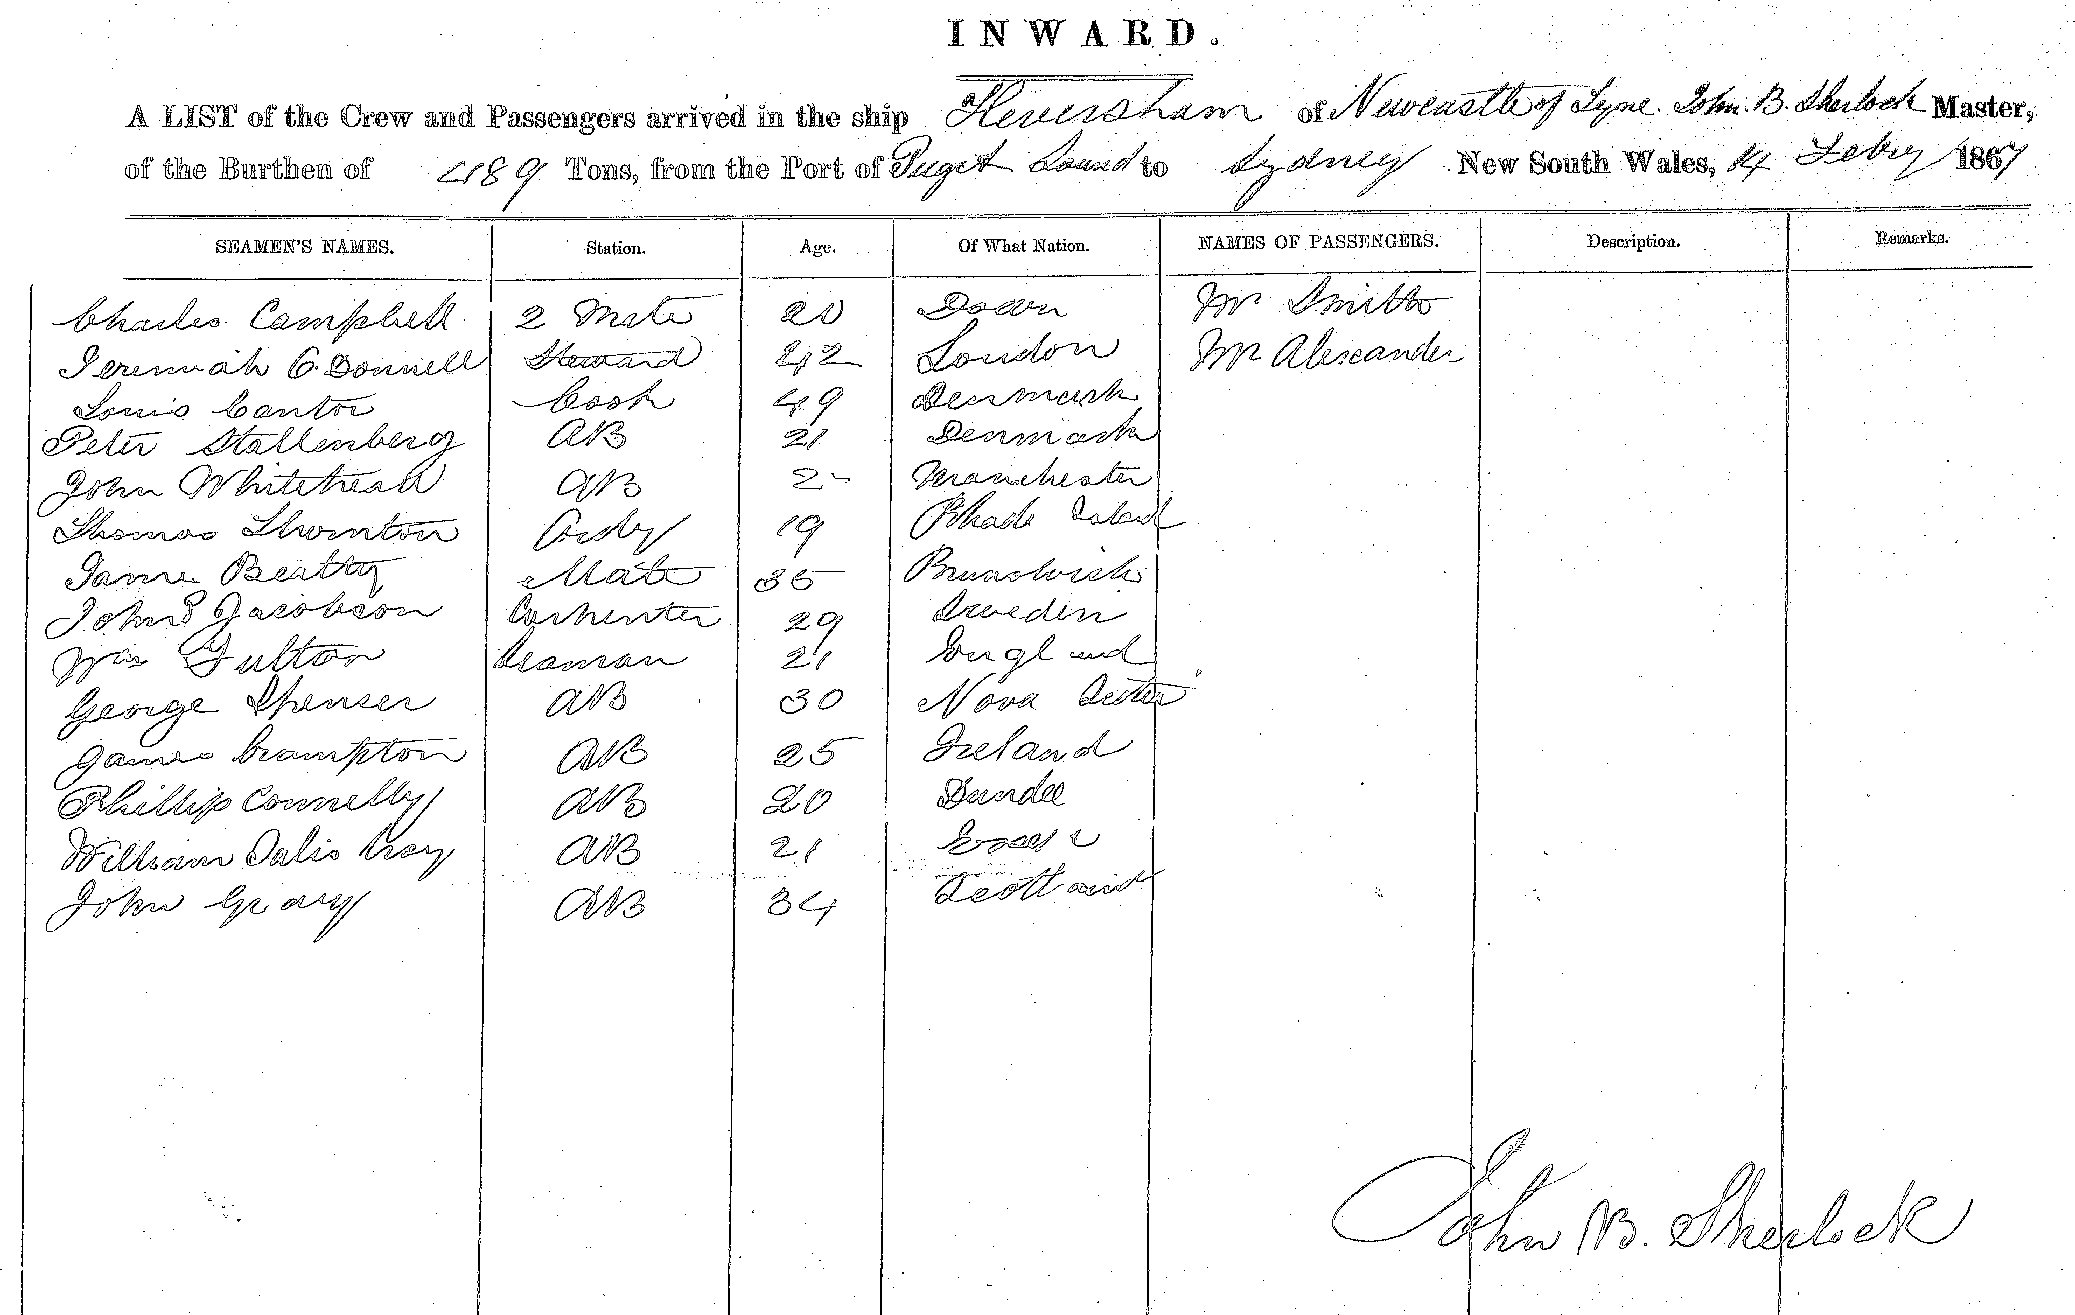 INWARD.
A LIST of the Crew and Passengers arrived in the ship Heversham of Newcastle of Tyne. John. B. Sherlock Master,
of the Burthen of 489 Tons, from the Port of Puget Sound to Sydney New South Wales, 14 Feby 1867
SEAMEN'S NAMES. Station. Age. Of What Nation. NAMES OF PASSENGERS. Description. Remarks.
Charles Campbell 2 Mate Down Mr Smith
Jeremiah O.Donnell Steward 42 London Mr Alexander
Louis Cantor Cook 49 Denmark
Peter Stallenberg AB 21 Denmark
John Whitehead AB Manchester
Thomas Thornton 19 Rhode Island
James Beatty Mate 35 Brunswick
John Jacobson Carpenter 29 Sweden
Wm Fulton Seaman 21 England
George Spenser AB 30 Nova Scotia
James Crampton AB 25 Ireland
Phillip Connelly AB 20 Dundee
William AB 21
John Gray AB 34 Scotland
John B. Sherlock